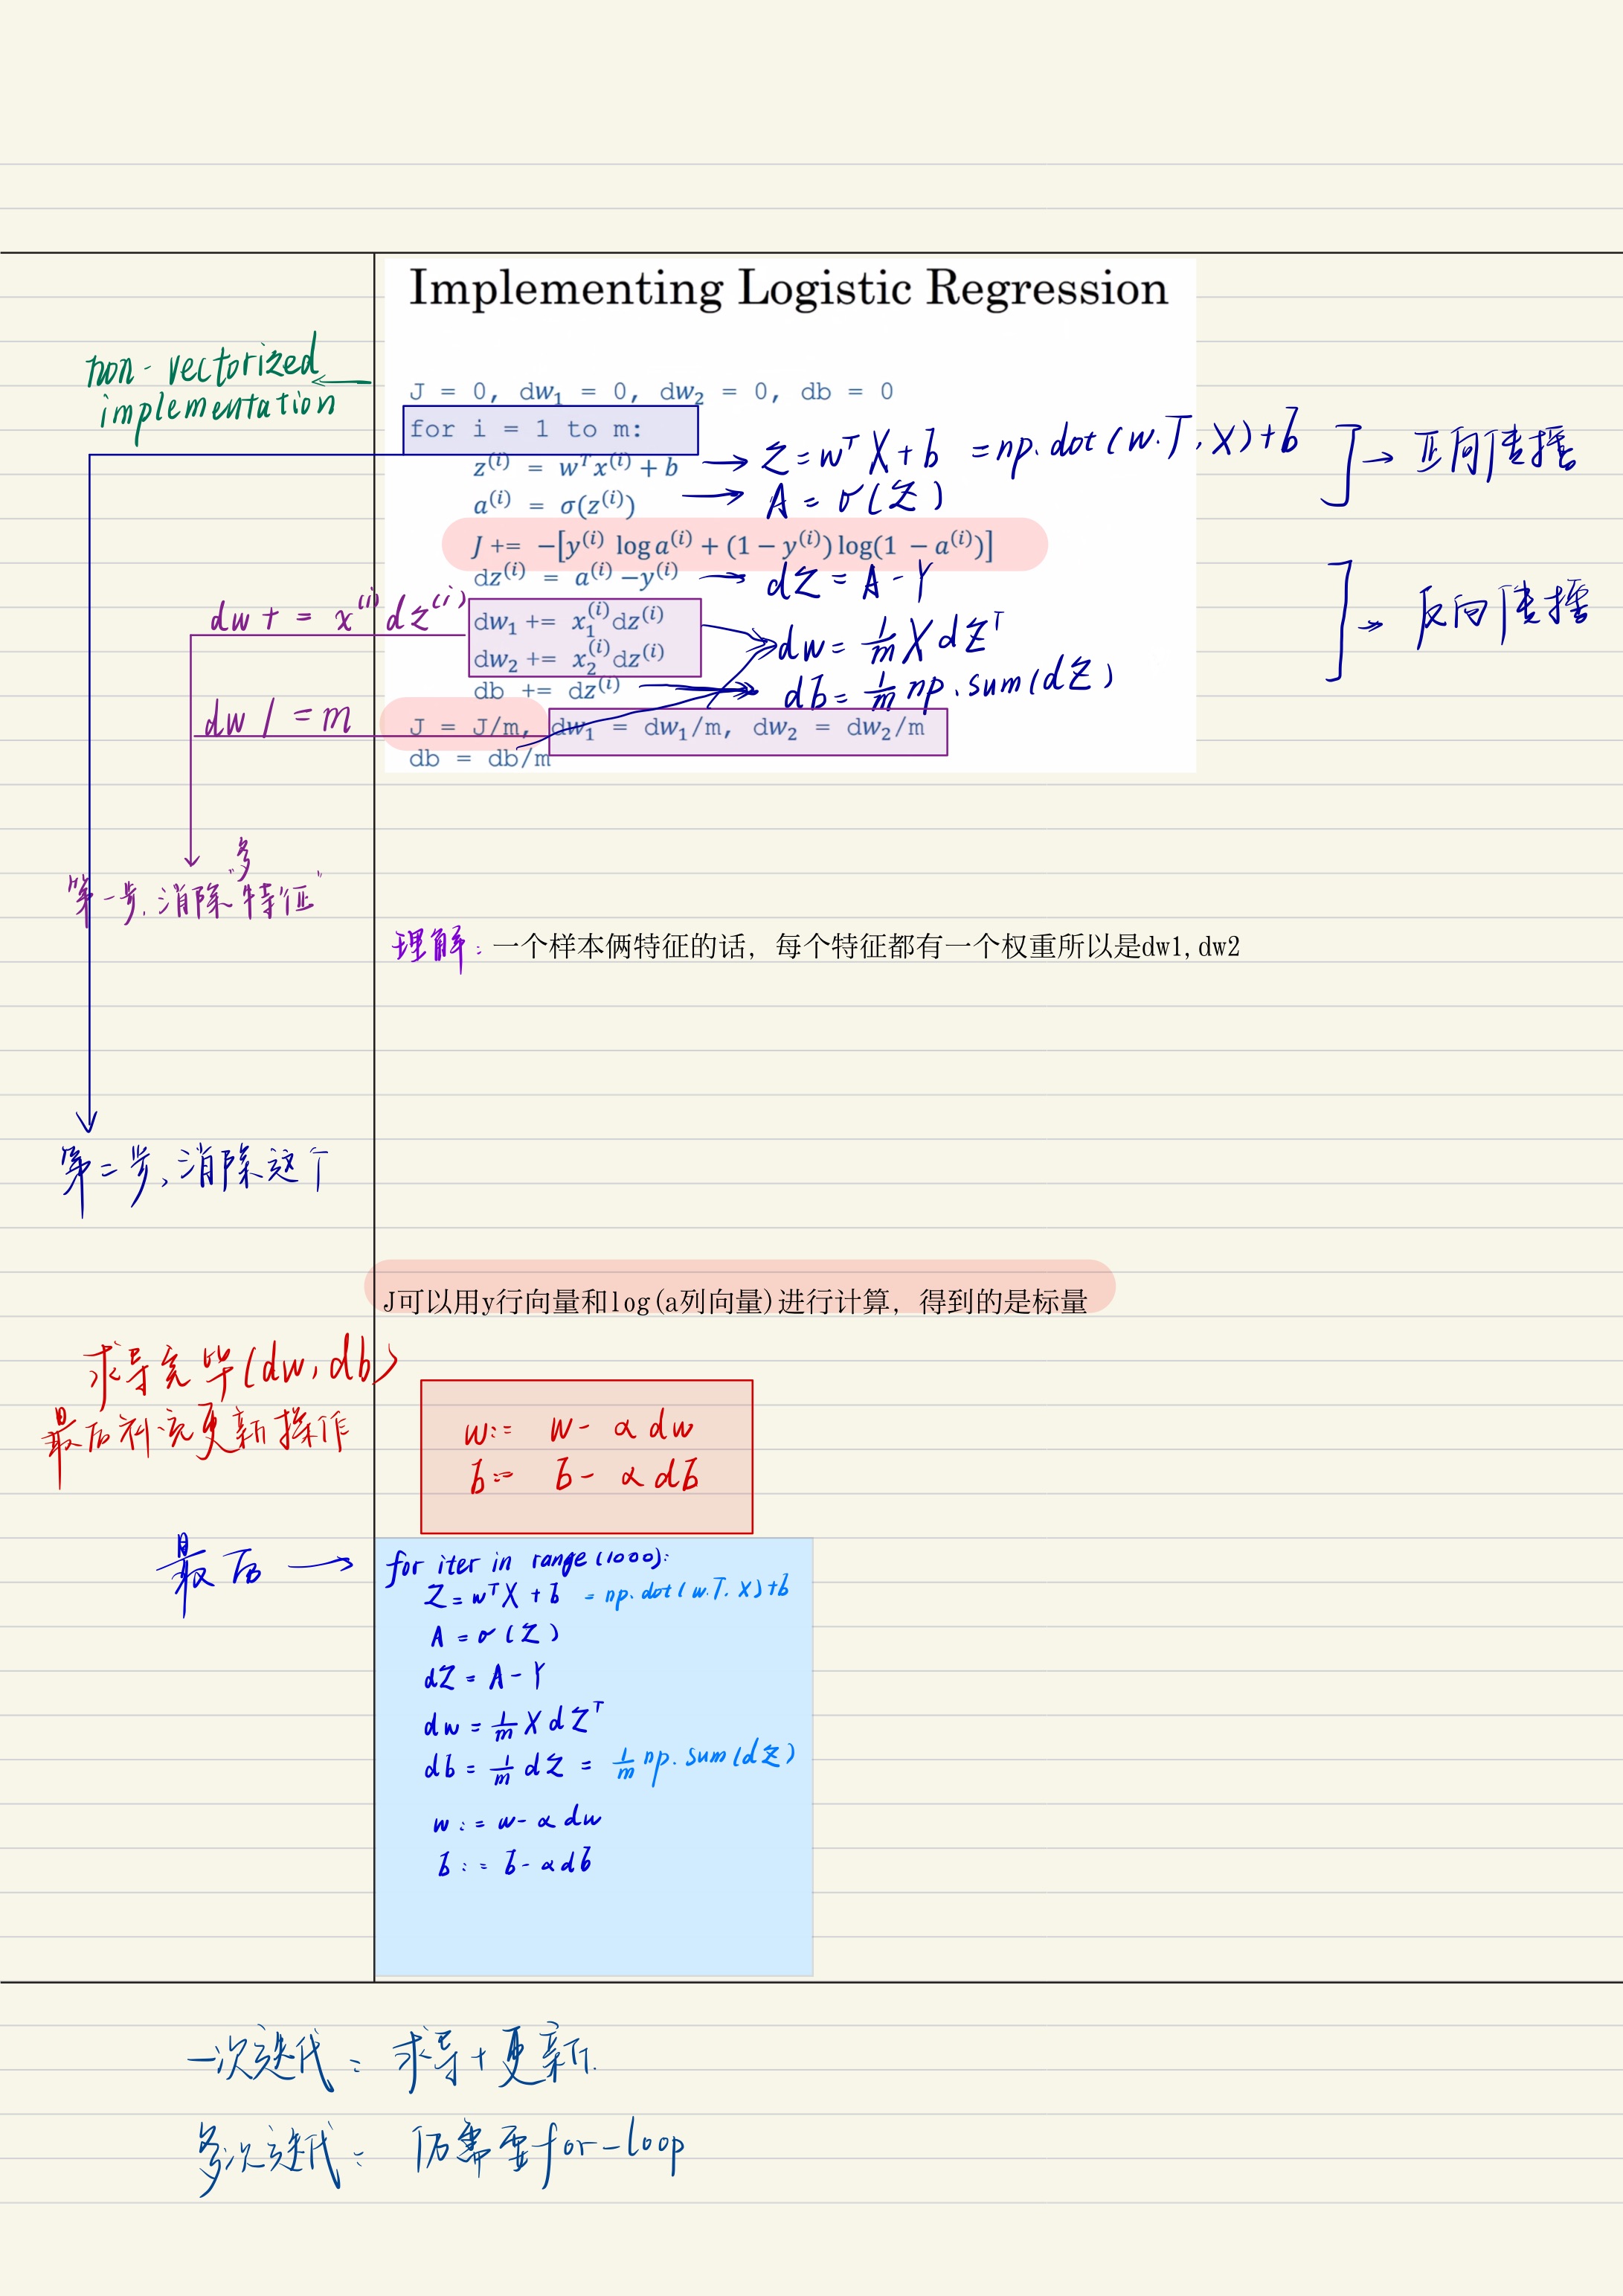 Implementing Logistic Regression
non-vectorized
implementation
J = 0, dw₁ = 0, dw₂ = 0, db = 0
for i = 1 to m:
z⁽ⁱ⁾ = wᵀx⁽ⁱ⁾ + b → Z = wᵀX + b = np.dot(w.T, X)+b ] → 正向传播
a⁽ⁱ⁾ = σ(z⁽ⁱ⁾) → A = σ(Z)
J += −[y⁽ⁱ⁾ log a⁽ⁱ⁾ + (1 − y⁽ⁱ⁾) log(1 − a⁽ⁱ⁾)]
dz⁽ⁱ⁾ = a⁽ⁱ⁾ − y⁽ⁱ⁾ → dZ = A − Y ] → 反向传播
dw += x⁽ⁱ⁾ dz⁽ⁱ⁾
dw₁ += x₁⁽ⁱ⁾dz⁽ⁱ⁾
dw₂ += x₂⁽ⁱ⁾dz⁽ⁱ⁾
dw = 1/m X dZᵀ
db += dz⁽ⁱ⁾ → db = 1/m np.sum(dZ)
dw /= m
J = J/m, dw₁ = dw₁/m, dw₂ = dw₂/m
db = db/m
第一步,消除"多特征"
理解: 一个样本俩特征的话, 每个特征都有一个权重所以是dw1,dw2
第二步,消除这个
J可以用y行向量和log(a列向量)进行计算, 得到的是标量
求导完毕(dw, db)
最后补充更新操作
w := w − α dw
b := b − α db
最后 →
for iter in range(1000):
Z = wᵀX + b = np.dot(w.T. X)+b
A = σ(Z)
dZ = A − Y
dw = 1/m X dZᵀ
db = 1/m dZ = 1/m np.sum(dZ)
w := w − α dw
b := b − α db
一次迭代: 求导+更新.
多次迭代: 仍需要for-loop